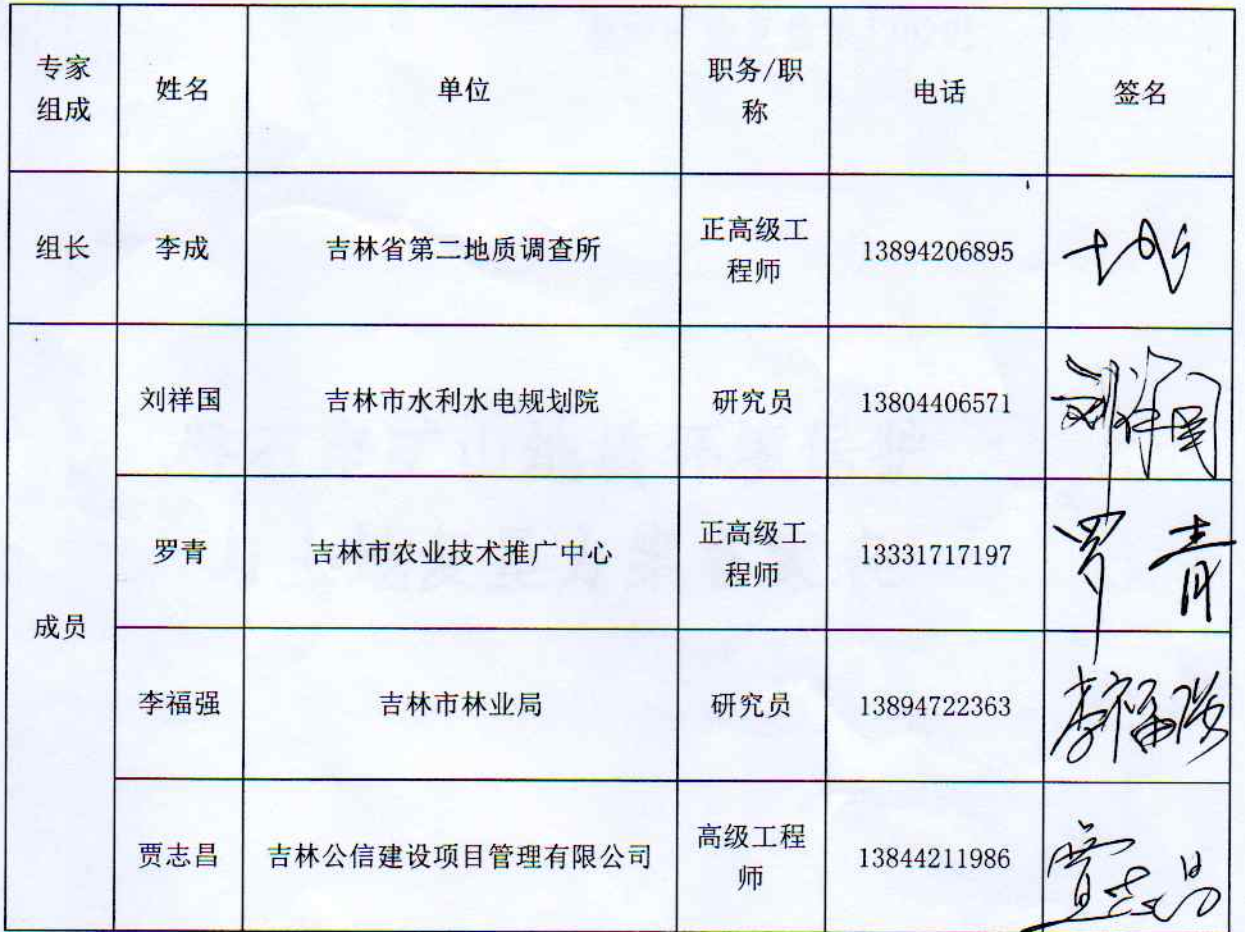 专家
组成
姓名
单位
职务/职
称
电话
签名
组长
李成
吉林省第二地质调查所
正高级工
程师
13894206895
成员
刘祥国
吉林市水利水电规划院
研究员
13804406571
刘祥国
罗青
吉林市农业技术推广中心
正高级工
程师
13331717197
罗青
李福强
吉林市林业局
研究员
13894722363
李福强
贾志昌
吉林公信建设项目管理有限公司
高级工程
师
13844211986
贾志昌